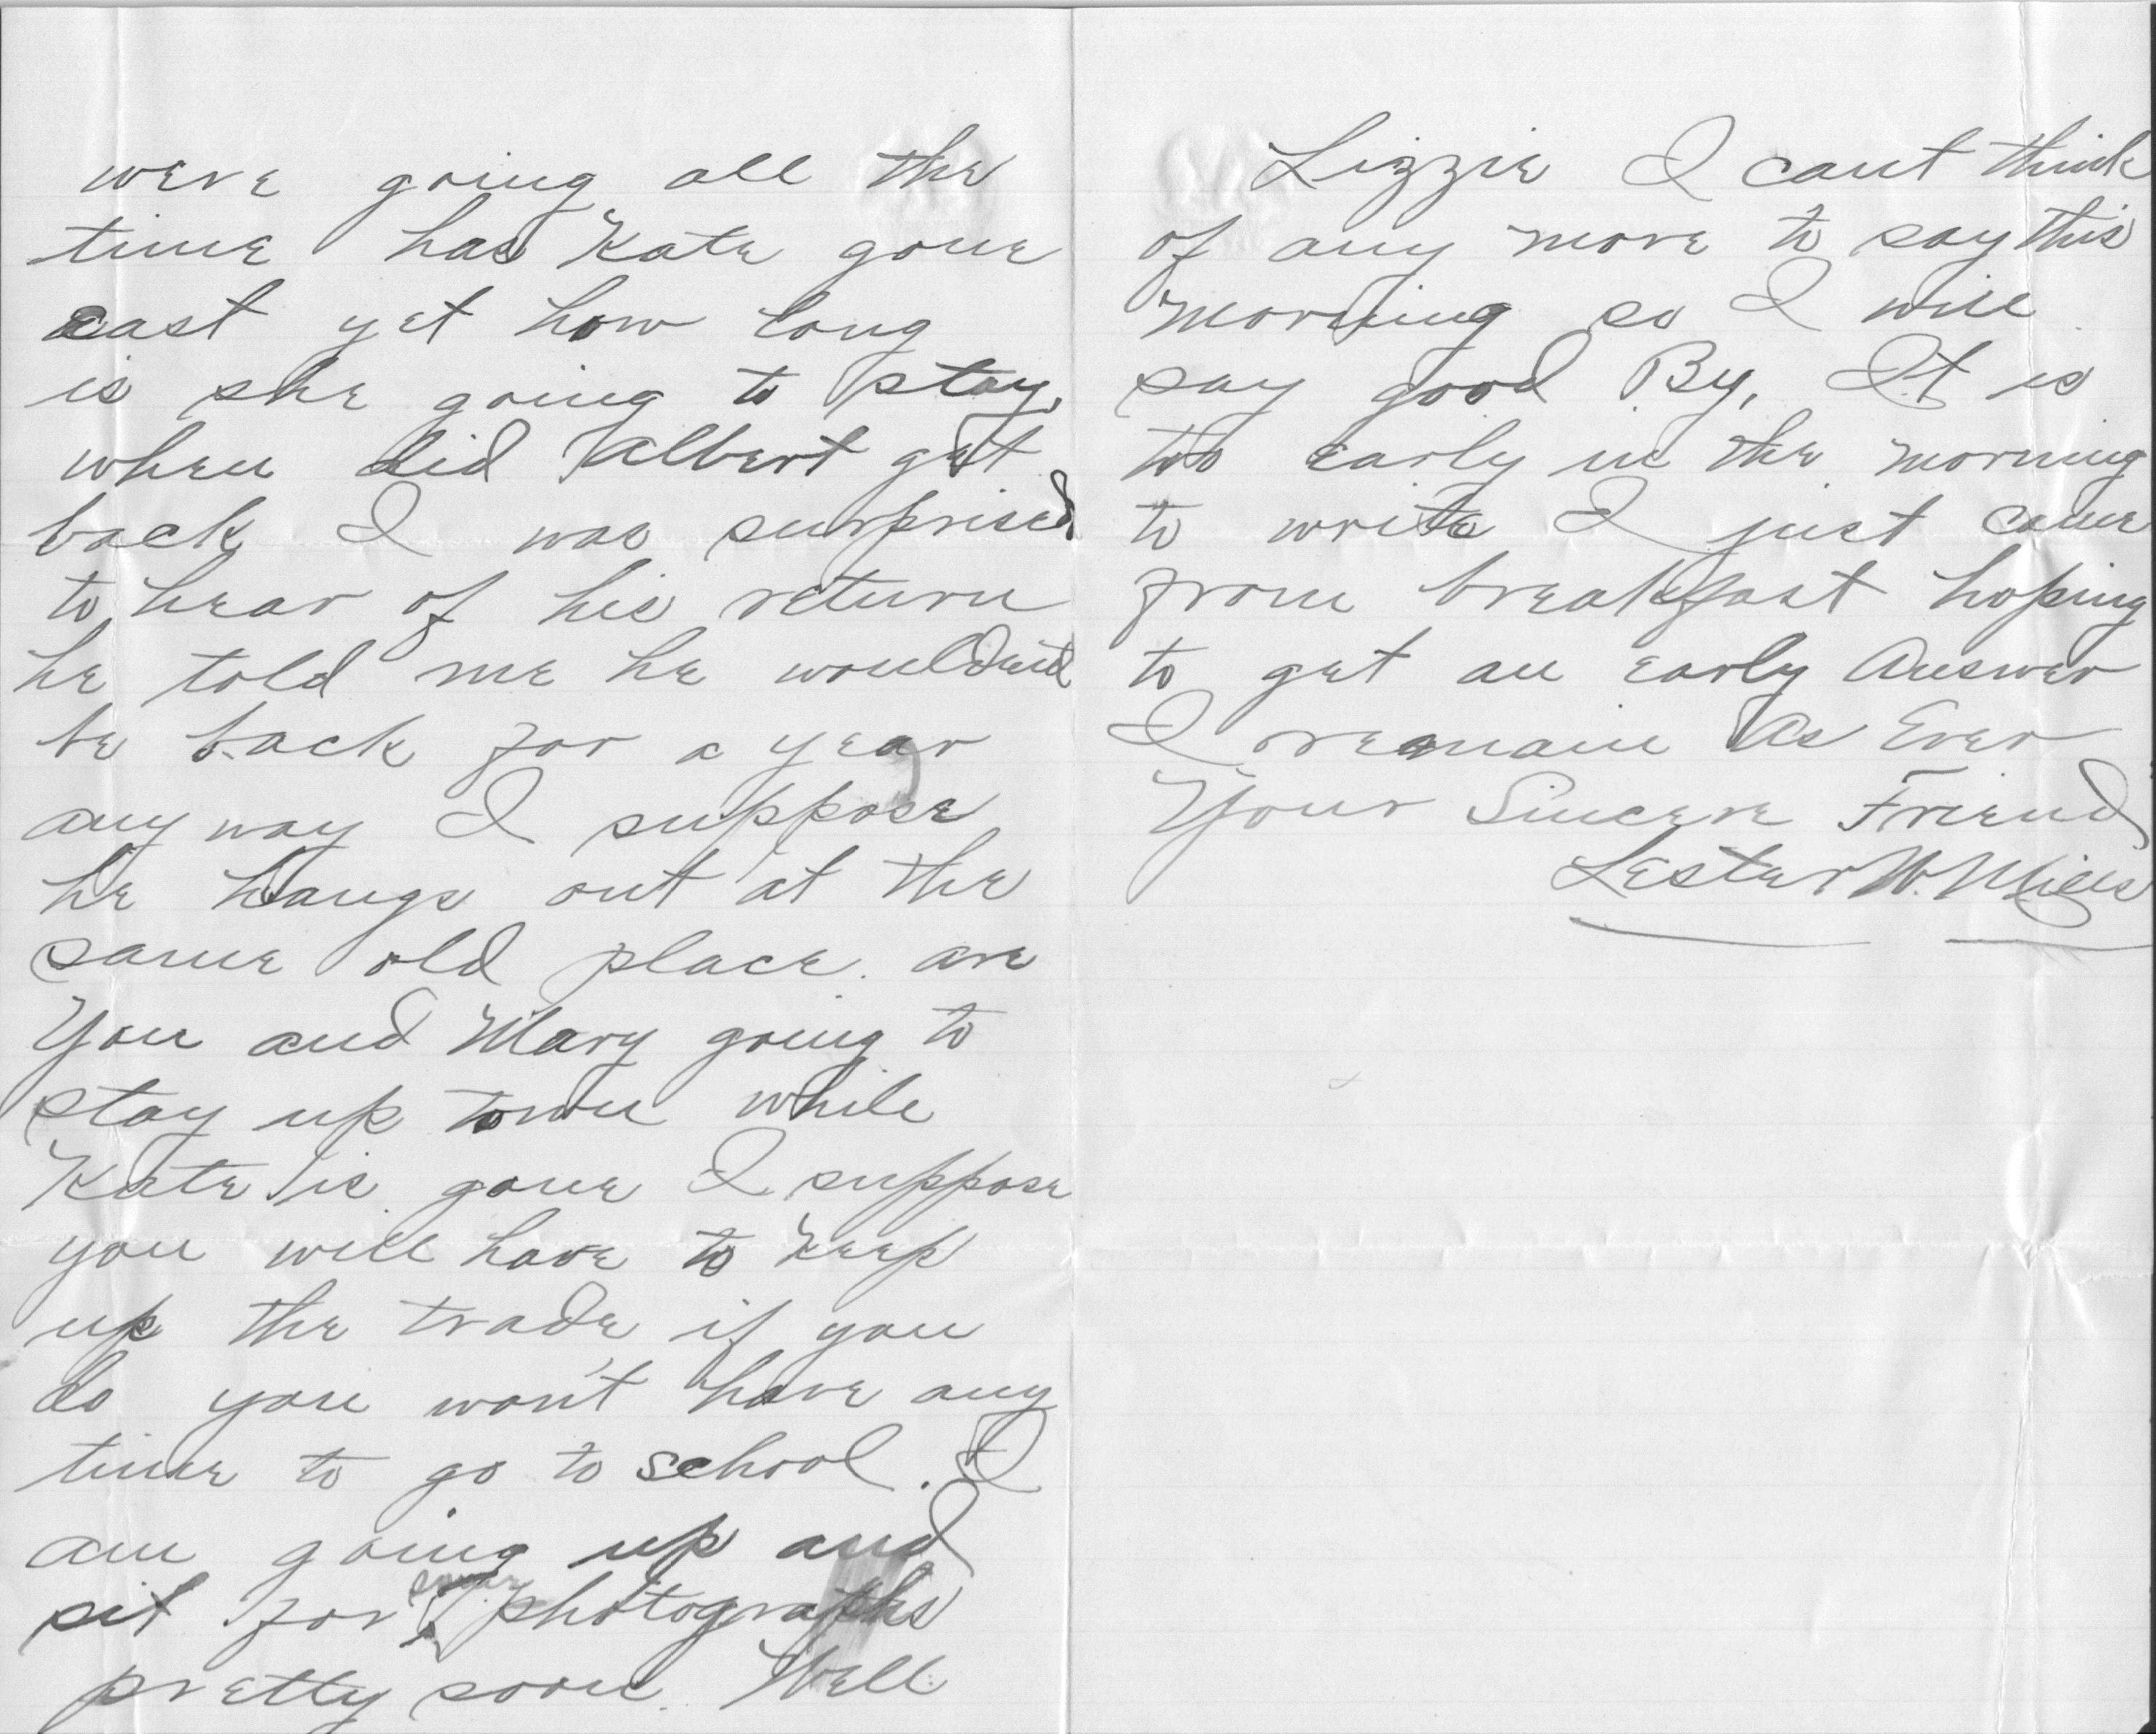 were going all the
time has Kate gone
east yet how long
is she going to stay,
when did Albert get
back I was surprised
to hear of his return
he told me he wouldent
be back for a year
any way I suppose
he hangs out at the
same old place. are
You and Mary going to
stay up town while
Kate is gone I suppose
you will have to keep
up the trade, if you
do you won't have any
time to go to school. I
am going up and
some
sit for photographs
pretty soon. Well
Lizzie I cant think
of any more to say this
morning so I will
say good By, It is
too early in the morning
to write I just came
from breakfast hoping
to get an early Answer
I remain As Ever
Your Sincere Friend
Lester W. Mills